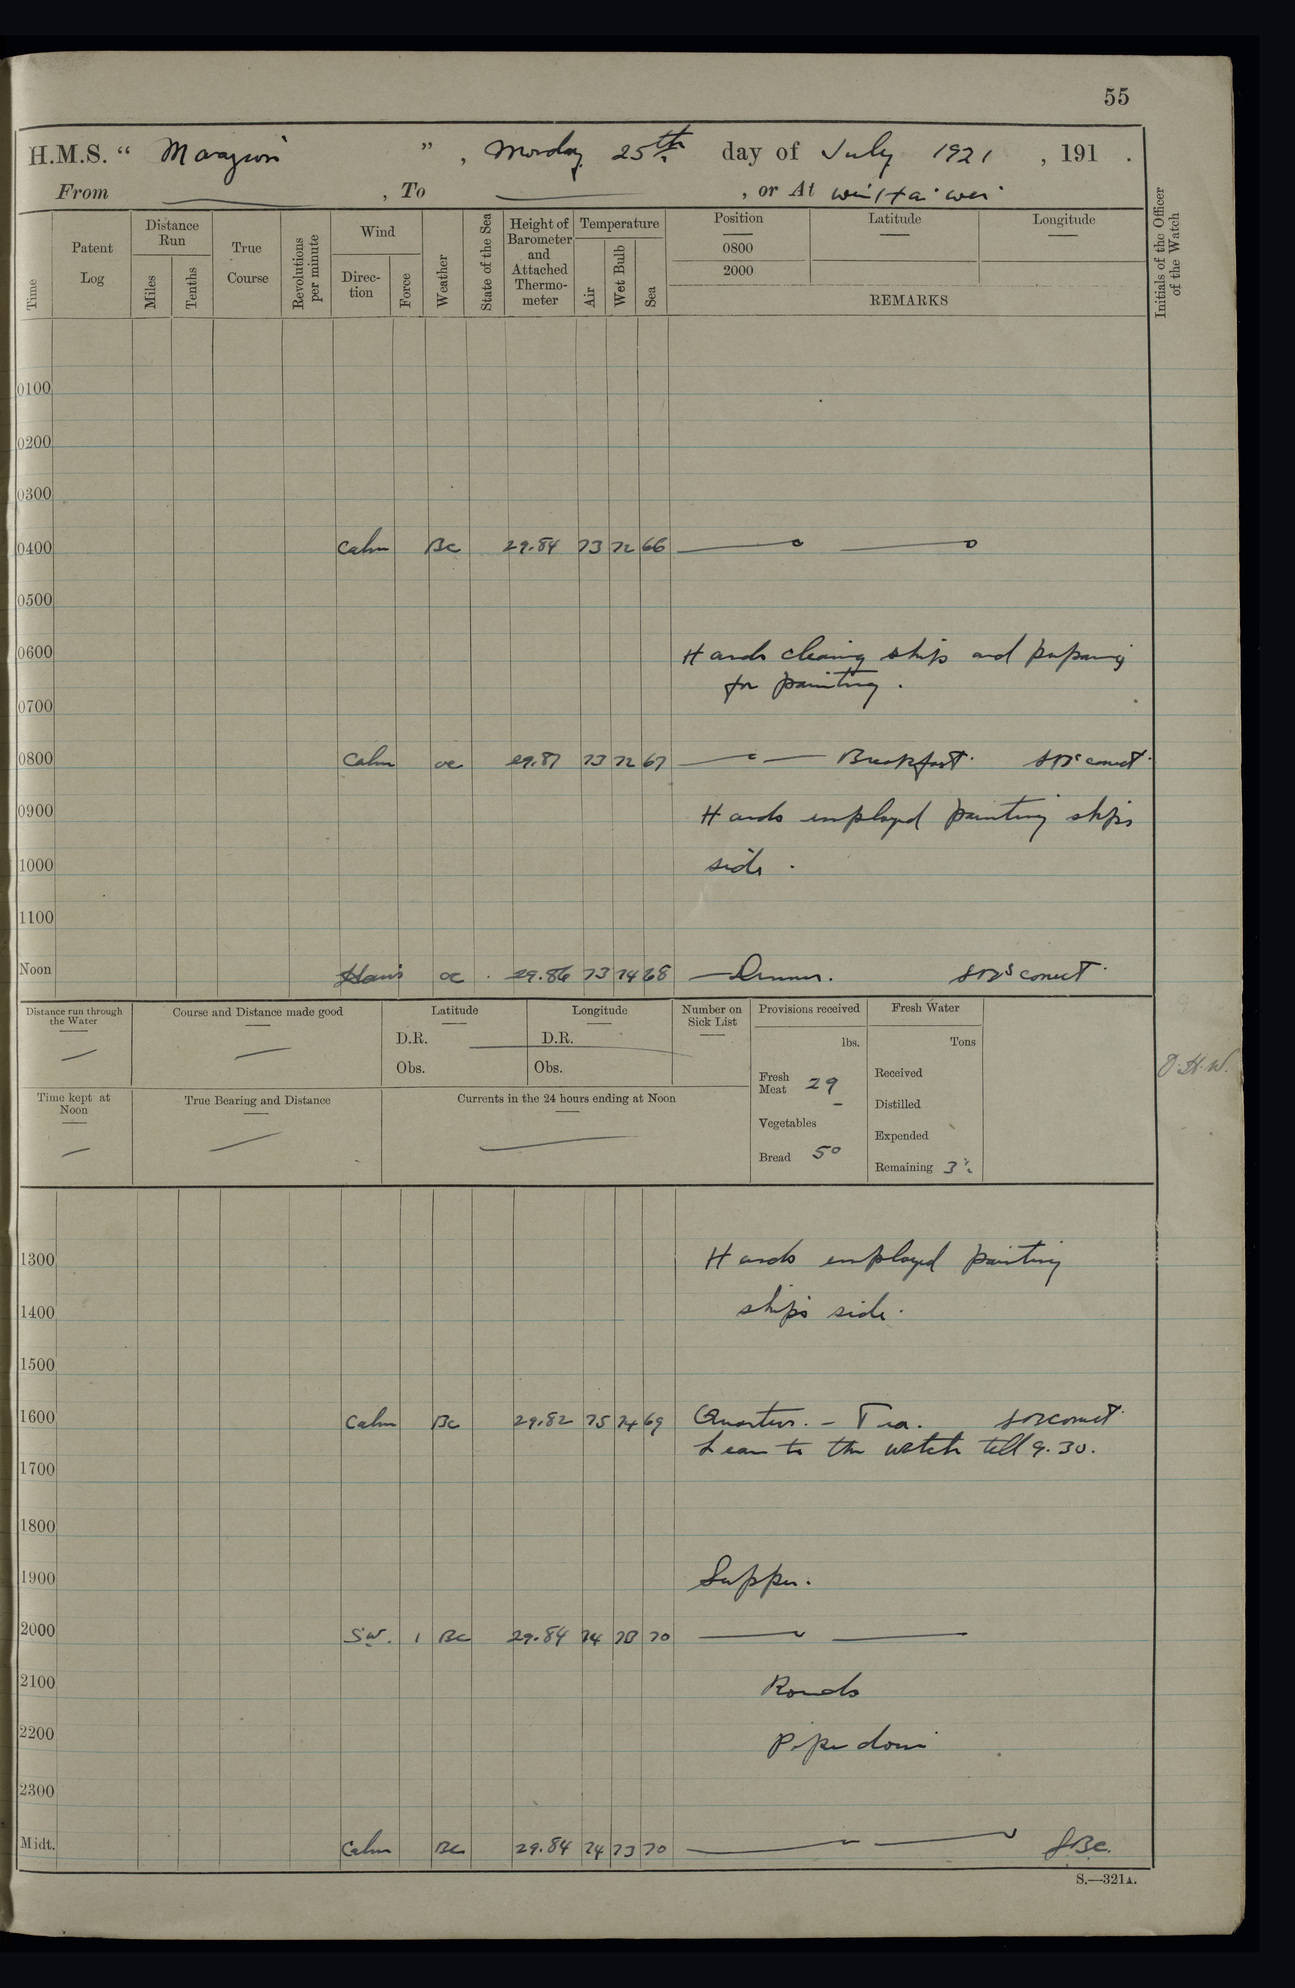 55
H.M.S. “ Marazion ” , Monday 25th day of July 1921 , 191 .
From , To , or At Wei Hai Wei
Time
Patent Log
Distance Run
Miles
Tenths
True Course
Revolutions per minute
Wind
Direc-tion
Force
Weather
State of the Sea
Height of Barometer and Attached Thermo-meter
Temperature
Air
Wet Bulb
Sea
Position
0800
2000
Latitude
Longitude
REMARKS
Initials of the Officer of the Watch
0100
0200
0300
0400 Calm BC 29.84 73 72 66
0500
0600 Hands cleaning ship and preparing
for painting.
0700
0800 Calm oc 29.87 73 72 67 Breakfast. correct.
0900 Hands employed painting ships
1000 side.
1100
Noon oc 29.86 73 74 68 Dinner. correct.
Distance run through the Water
Course and Distance made good
Latitude
D.R.
Obs.
Longitude
D.R.
Obs.
Number on Sick List
Provisions received
lbs.
Fresh Meat 29
Vegetables –
Bread 50
Fresh Water
Tons
Received
Distilled
Expended
Remaining
O.H.W.
Time kept at Noon
True Bearing and Distance
Currents in the 24 hours ending at Noon
1300 Hands employed painting
1400 ships side.
1500
1600 Calm BC 29.82 75 74 69 Quarters. – Tea. correct.
Leave to the watch till 9.30.
1700
1800
1900 Supper.
2000 SW. 1 BC 29.84 74 73 70
2100 Rounds
2200 Pipe down
2300
Midt. Calm BC 29.84 74 73 70
S.—321A.